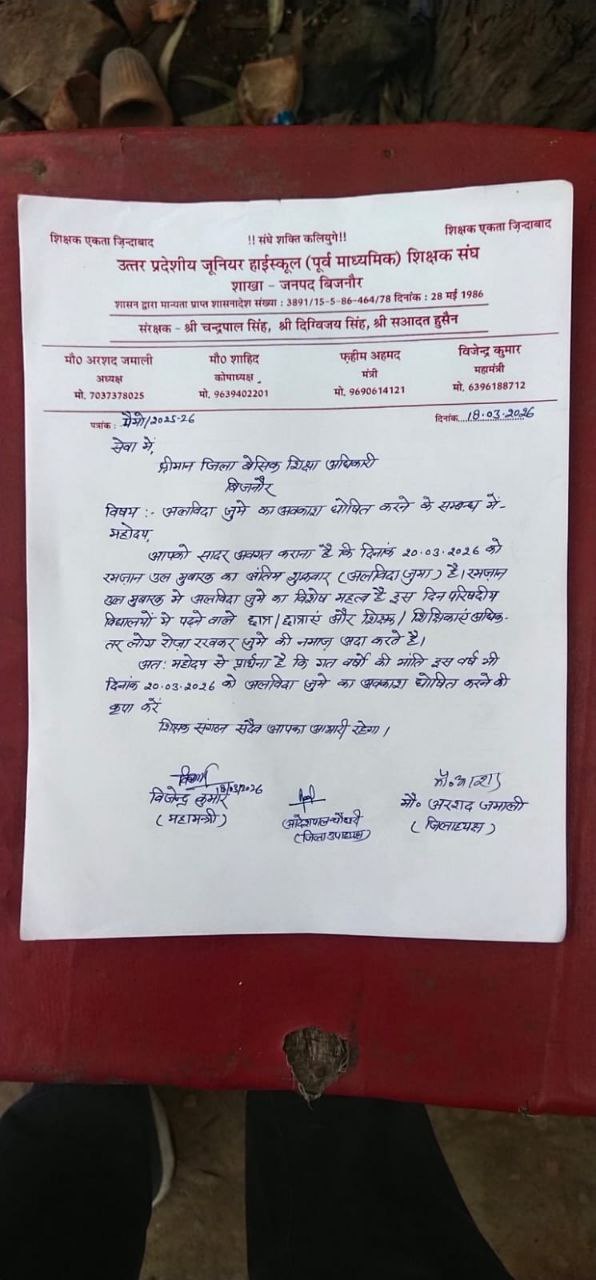 शिक्षक एकता ज़िन्दाबाद !! संघे शक्ति कलियुगे!! शिक्षक एकता ज़िन्दाबाद
उत्तर प्रदेशीय जूनियर हाईस्कूल (पूर्व माध्यमिक) शिक्षक संघ
शाखा - जनपद बिजनौर
शासन द्वारा मान्यता प्राप्त शासनादेश संख्या : 3891/15-5-86-464/78 दिनांक : 28 मई 1986
संरक्षक - श्री चन्द्रपाल सिंह, श्री दिग्विजय सिंह, श्री सआदत हुसैन
मौ0 अरशद जमाली मौ0 शाहिद फ़हीम अहमद विजेन्द्र कुमार
अध्यक्ष कोषाध्यक्ष मंत्री महामंत्री
मो. 7037378025 मो. 9639402201 मो. 9690614121 मो. 6396188712
पत्रांक : मैमो/2025-26 दिनांक 18.03.2026
सेवा में,
श्रीमान जिला बेसिक शिक्षा अधिकारी
बिजनौर
विषय :- अलविदा जुमे का अवकाश घोषित करने के सम्बन्ध में-
महोदय,
आपको सादर अवगत कराना है कि दिनांक 20.03.2026 को
रमज़ान उल मुबारक का अंतिम शुक्रवार (अलविदा जुमा) है। रमज़ान
उल मुबारक मे अलविदा जुमे का विशेष महत्व है इस दिन परिषदीय
विद्यालयों में पढ़ने वाले छात्र/छात्राएं और शिक्षक/शिक्षिकाएं अधिक-
तर लोग रोज़ा रखकर जुमे की नमाज़ अदा करते है।
अत: महोदय से प्रार्थना है कि गत वर्षो की भांति इस वर्ष भी
दिनांक 20.03.2026 को अलविदा जुमे का अवकाश घोषित करने की
कृपा करें
शिक्षक संगठन सदैव आपका आभारी रहेगा।
18/03/2026
विजेन्द्र कुमार
(महामन्त्री)
आदेशपाल चौधरी
(जिला उपाध्यक्ष)
मौ. अरशद जमाली
(जिलाध्यक्ष)